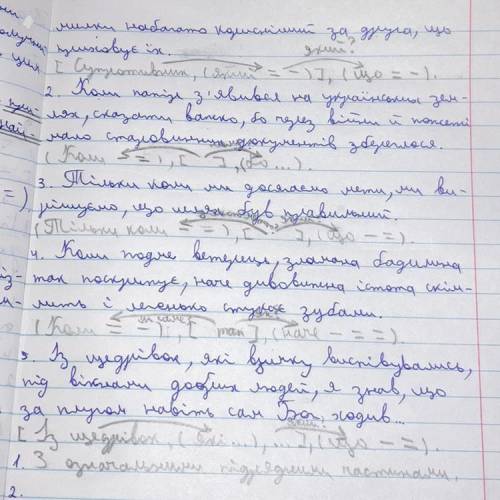 милки набагато корисніший за друга, що
приховує їх.
який?
[ Супротивник, (який = –)], (що = –).
2. Коли папір з'явився на українських зем-
лях, сказати важко, бо через війни й пожежі
мало старовинних документів збереглося.
(Коли = –), [ ], (бо...).
3. Тільки коли ми досягаємо мети, ми ви-
рішуємо, що шлях був правильний.
(Тільки коли – =), [ ], (що – =).
4. Коли подме вітерець, зламана бадилина
так поскрипує, наче дивовижна істота скім-
лить і легенько стукає зубами.
(Коли = –), [ так ], (наче – = =).
5. Із щедрівок, які взимку виспівувались,
під вікнами добрих людей, я знав, що
за плугом навіть сам Бог ходив...
[ Із щедрівок, (які...), ...], (що – =).
1. З означальними підрядними частинами.
2.